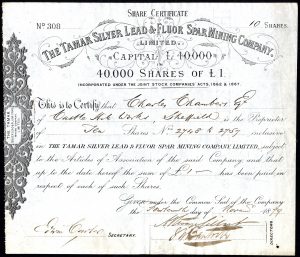 SHARE CERTIFICATE
No 308
10 SHARES.
THE TAMAR SILVER LEAD & FLUOR SPAR MINING COMPANY,
LIMITED.
CAPITAL £40000
IN
40,000 SHARES OF £1
INCORPORATED UNDER THE JOINT STOCK COMPANIES ACTS, 1862 & 1867.
This is to Certify that Charles Chambers Esq
of Castle Works, Sheffield is the Proprietor
of Ten Shares No 2748 @ 2757 inclusive
IN THE TAMAR SILVER LEAD & FLUOR SPAR MINING COMPANY LIMITED, subject
to the Articles of Association of the said Company and that
up to the date hereof the sum of £1 has been paid in
respect of each of such Shares.
Given under the Common Seal of the Company
the day of 1879
SECRETARY.
DIRECTORS